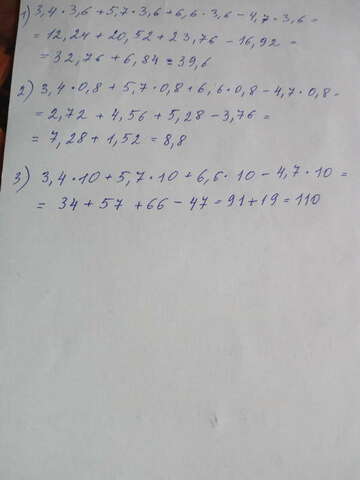 1) 3,4 · 3,6 + 5,7 · 3,6 + 6,6 · 3,6 - 4,7 · 3,6 =
= 12,24 + 20,52 + 23,76 - 16,92 =
= 32,76 + 6,84 = 39,6
2) 3,4 · 0,8 + 5,7 · 0,8 + 6,6 · 0,8 - 4,7 · 0,8 =
= 2,72 + 4,56 + 5,28 - 3,76 =
= 7,28 + 1,52 = 8,8
3) 3,4 · 10 + 5,7 · 10 + 6,6 · 10 - 4,7 · 10 =
= 34 + 57 + 66 - 47 = 91 + 19 = 110